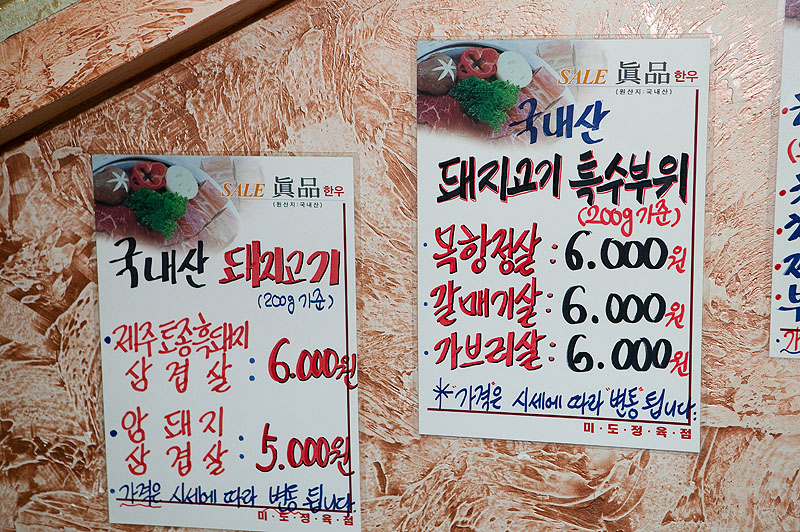 SALE 眞品 한우
(원산지:국내산)
국내산 돼지고기
(200g 기준)
·제주토종흑돼지
삼겹살 : 6.000원
·암돼지
삼겹살 : 5.000원
·가격은 시세에 따라 변동 됩니다.
미·도·정·육·점
SALE 眞品 한우
(원산지:국내산)
국내산
돼지고기 특수부위
(200g 기준)
·목항정살 : 6.000원
·갈매기살 : 6.000원
·가브리살 : 6.000원
*"가격"은 시세에 따라 "변동" 됩니다.
미·도·정·육·점